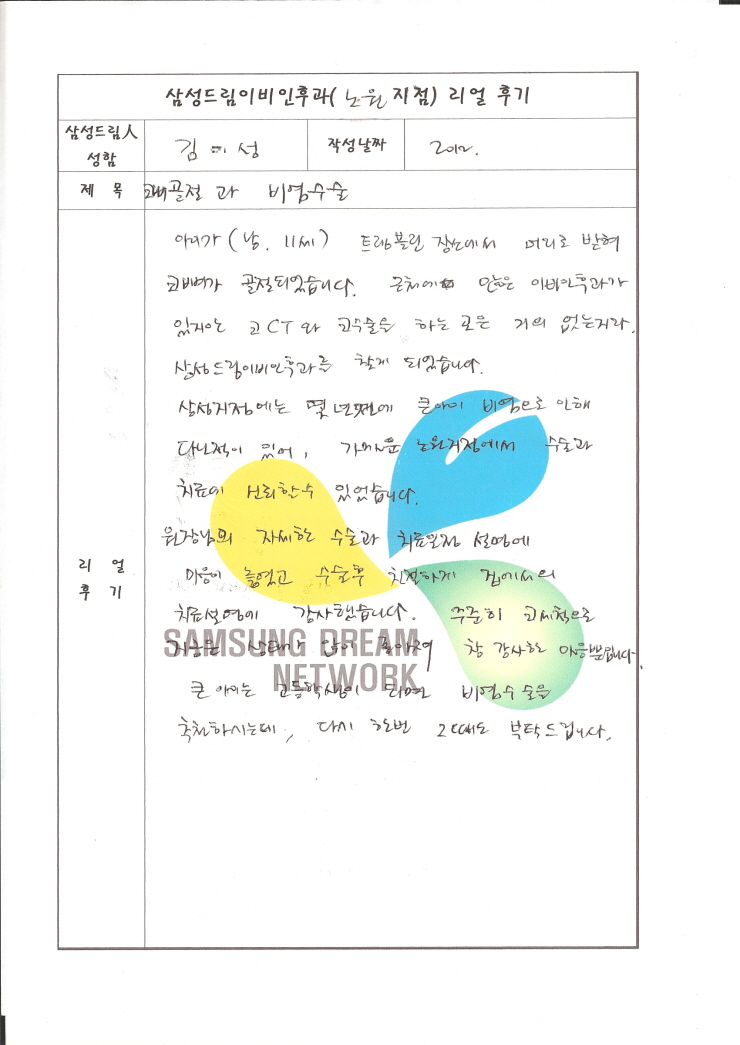 삼성드림이비인후과( 노원 지점) 리얼 후기
삼성드림人 성함
김 미 성
작성날짜
2012.
제 목
코뼈골절 과 비염수술
리 얼 후 기
아이가 (남. 11세) 트램블린 장소에서 머리로 받혀
코뼈가 골절되었습니다. 근처에 많은 이비인후과가
있지만 코CT 와 코수술을 하는 곳은 거의 없는지라,
삼성드림이비인후과를 찾게 되었습니다.
삼성지점에는 몇 년전에 큰아이 비염으로 인해
다닌적이 있어, 가까운 노원지점에서 수술과
치료에 신뢰할수 있었습니다.
원장님의 자세한 수술과 치료일정 설명에
마음이 놓였고 수술후 친절하게 집에서의
치료설명에 감사했습니다. 꾸준히 코세척으로
지금은 상태가 많이 좋아져 참 감사한 마음뿐입니다.
큰 아이는 고등학생이 되면 비염수술을
추천하시는데, 다시 한번 그때도 부탁드립니다.
SAMSUNG DREAM
NETWORK